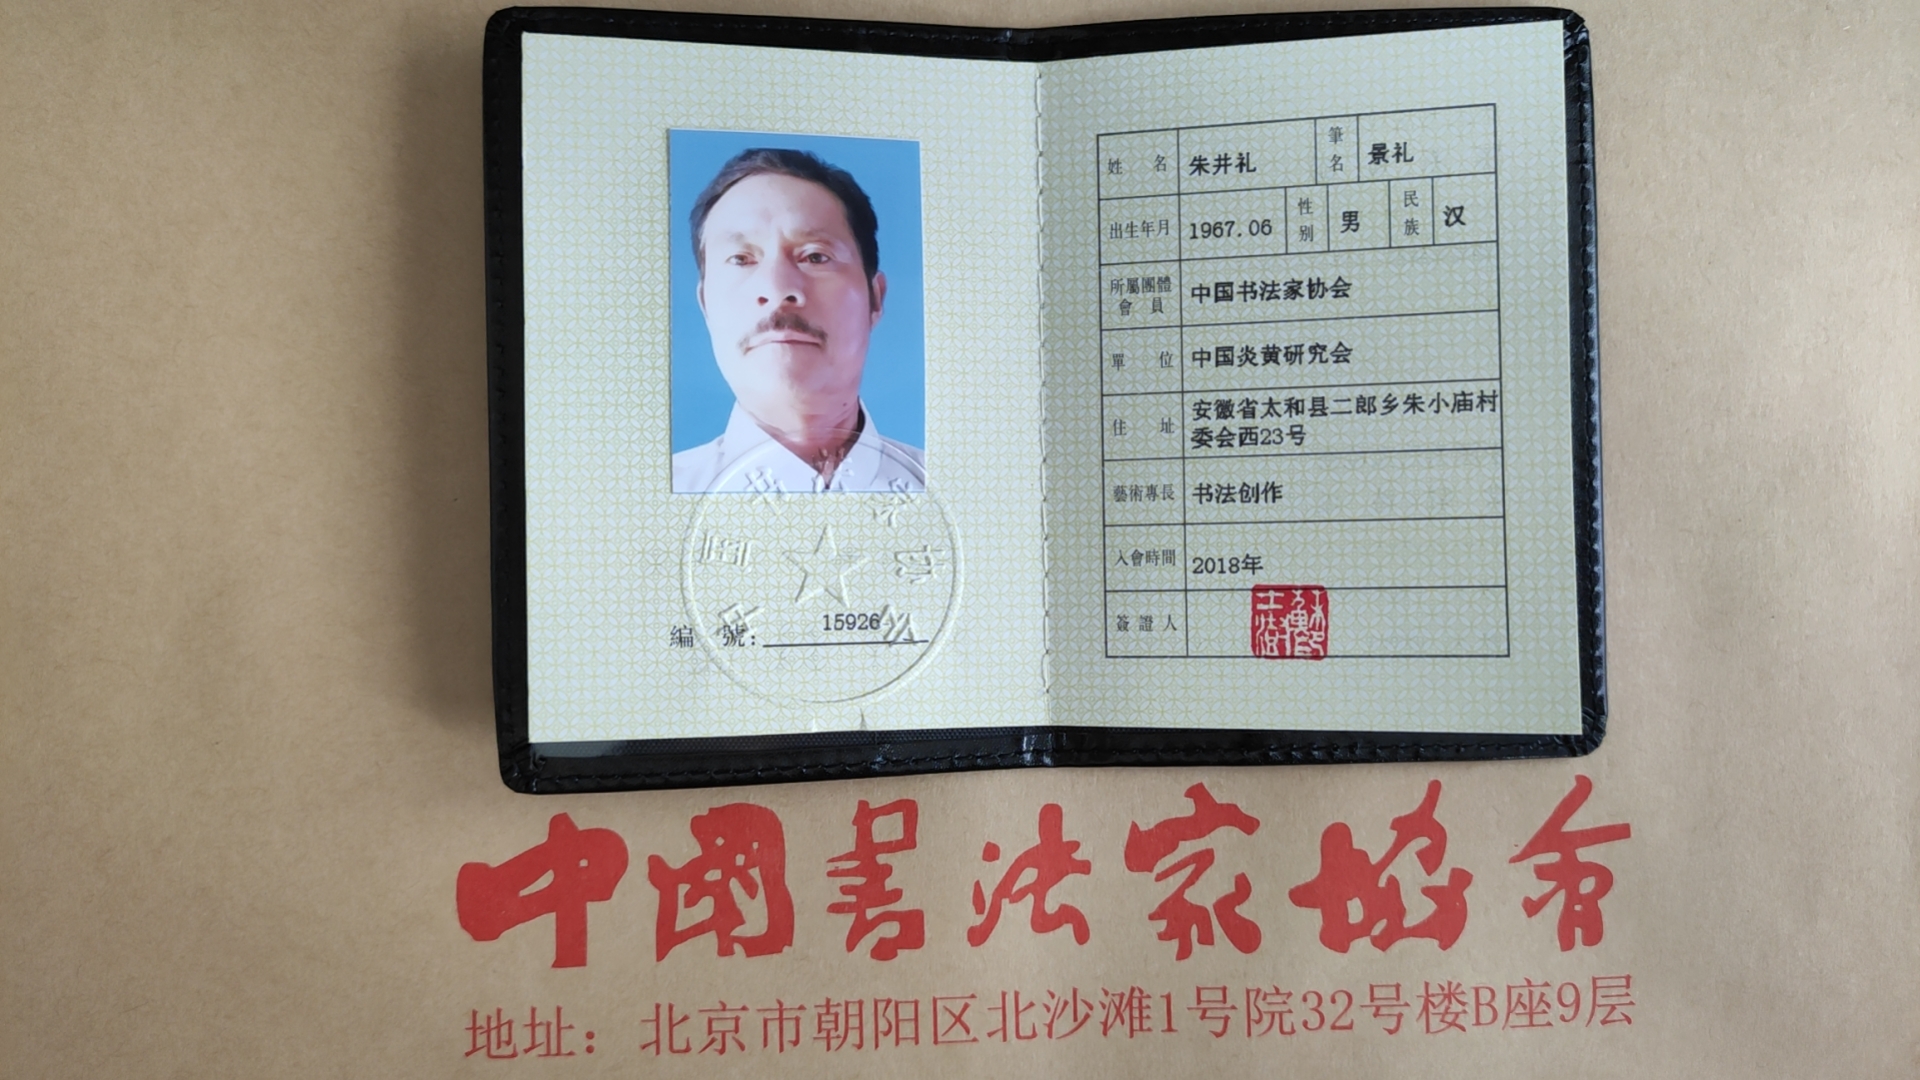 編 號: 15926
姓 名 朱井礼 筆名 景礼
出生年月 1967.06 性别 男 民族 汉
所屬團體會員 中国书法家协会
單 位 中国炎黄研究会
住 址 安徽省太和县二郎乡朱小庙村
委会西23号
藝術專長 书法创作
入會時間 2018年
簽 證 人
中國書法家協會
地址：北京市朝阳区北沙滩1号院32号楼B座9层